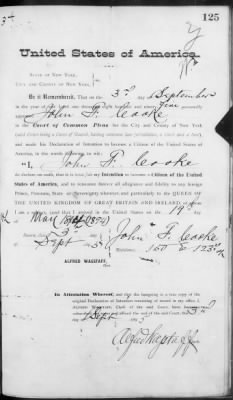 125
United States of America.
STATE OF NEW YORK,
CITY AND COUNTY OF NEW YORK,
Be it Remembered, That on the 3rd September
in the year of our Lord one thousand eight hundred and ninety five personally
appeared John F. Cooke
in the Court of Common Pleas for the City and County of New York
(said Court being a Court of Record, having common law jurisdiction, a Clerk and a Seal)
and made his Declaration of Intention to become a Citizen of the United States of
America, in the words following, to wit:
"I, John F. Cooke
do declare on oath, that it is bona fide my Intention to become a Citizen of the United
States of America, and to renounce forever all allegiance and fidelity to any foreign
Prince, Potentate, State or Sovereignty whatever, and particularly to the QUEEN OF
THE UNITED KINGDOM OF GREAT BRITAIN AND IRELAND
and that I arrived in the United States on the 19th day
3rd
Sept
John F. Cooke
ALFRED WAGSTAFF,
In Attestation Whereof, and that the foregoing is a true copy of the
original Declaration of Intention remaining of record in my office, I,
ALFRED WAGSTAFF, Clerk of the said Court, have
3rd
Sept
Alfred Wagstaff